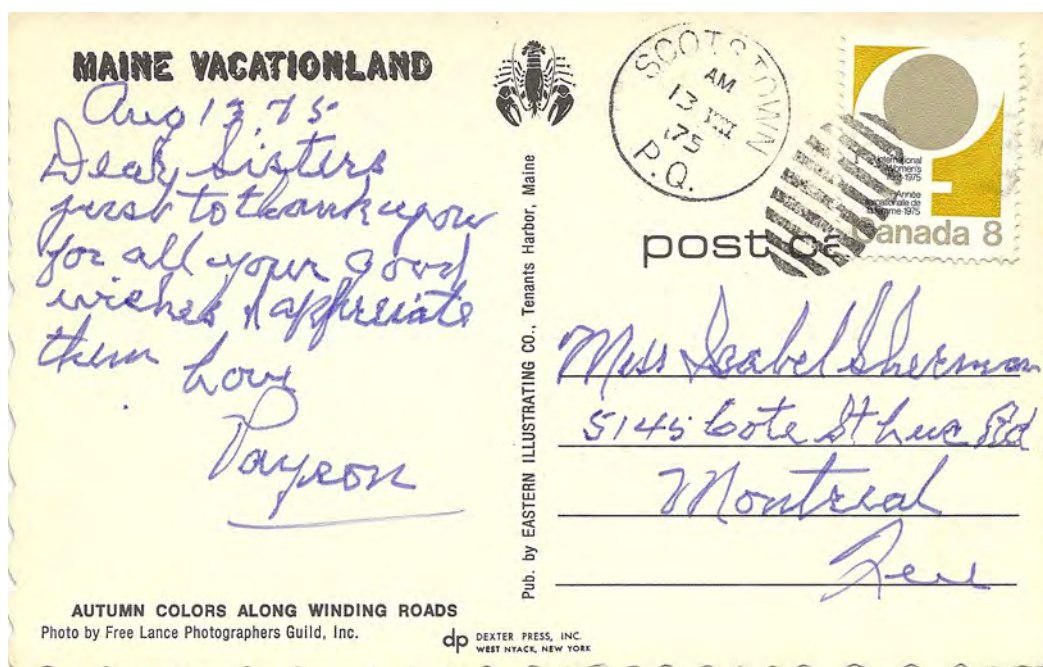 MAINE VACATIONLAND
Aug 13 75
Dear Sisters
just to thank you
for all your good
wishes I appreciate
them Love
Payson
AUTUMN COLORS ALONG WINDING ROADS
Photo by Free Lance Photographers Guild, Inc.
dp DEXTER PRESS, INC.
WEST NYACK, NEW YORK
Pub. by EASTERN ILLUSTRATING CO., Tenants Harbor, Maine
SCOTSTOWN
AM
13 VIII
75
P.Q.
International
Women's
Year 1975
Année
internationale de
la femme 1975
Canada 8
post ca
Miss Isabel Sherman
5145 Cote St Luc Rd
Montreal